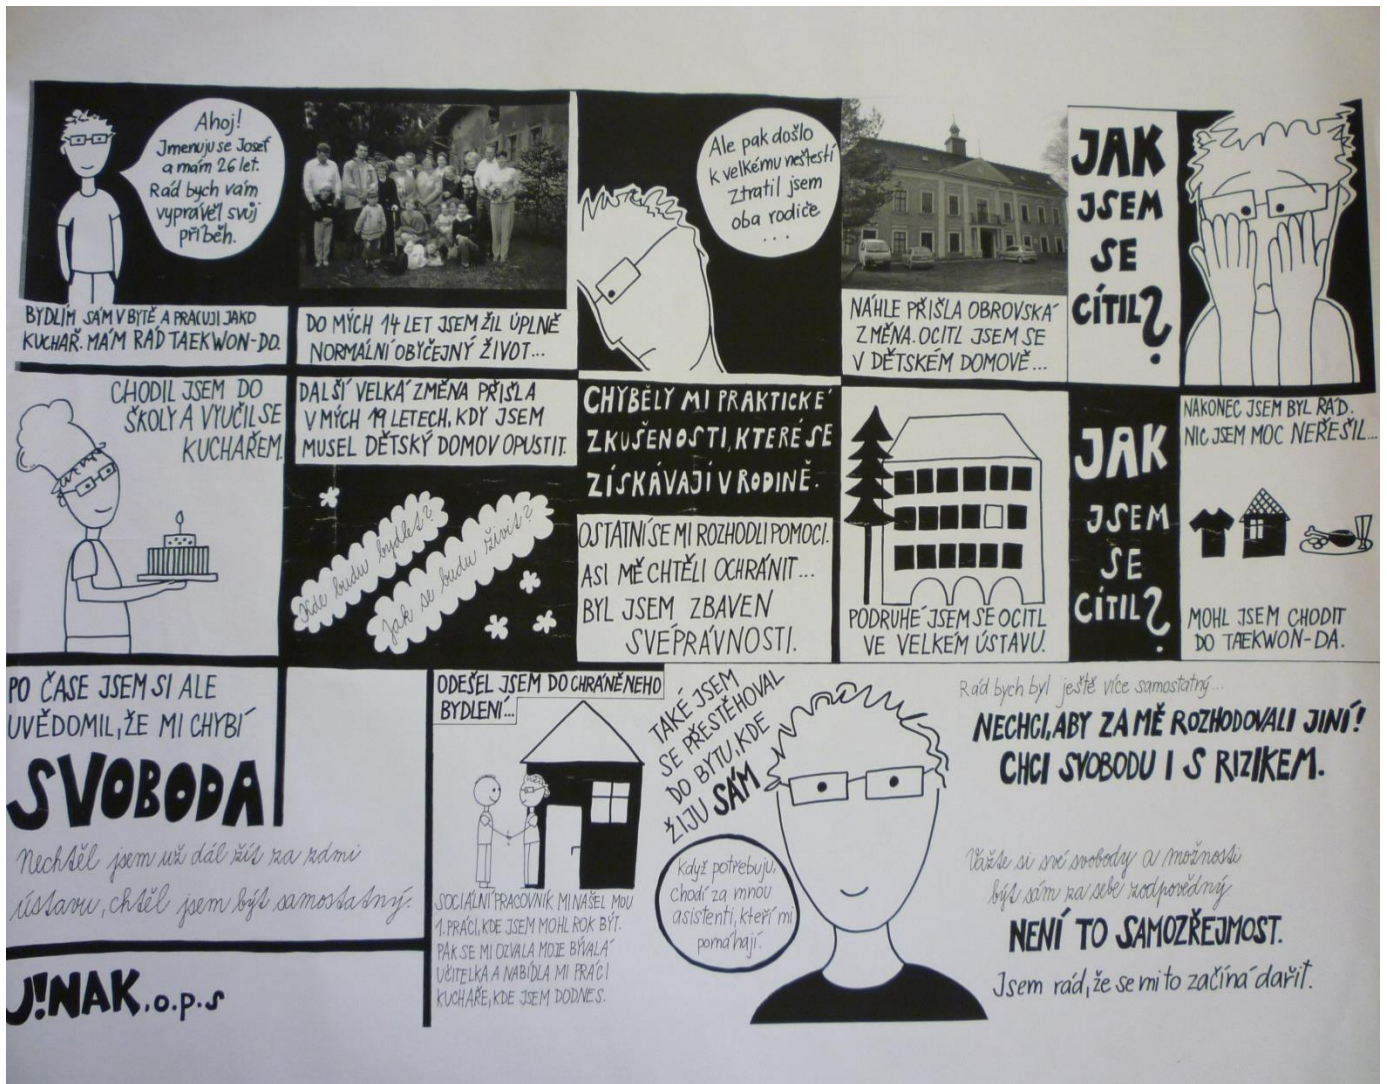 Ahoj!
Jmenuju se Josef
a mám 26 let.
Rád bych vám
vyprávěl svůj
příběh.
BYDLÍM SÁM V BYTĚ A PRACUJI JAKO
KUCHAŘ. MÁM RÁD TAEKWON-DO.
DO MÝCH 14 LET JSEM ŽIL ÚPLNĚ
NORMÁLNÍ OBYČEJNÝ ŽIVOT...
Ale pak došlo
k velkému neštěstí
Ztratil jsem
oba rodiče
...
NÁHLE PŘIŠLA OBROVSKÁ
ZMĚNA. OCITL JSEM SE
V DĚTSKÉM DOMOVĚ...
JAK
JSEM
SE
CÍTIL?
CHODIL JSEM DO
ŠKOLY A VYUČIL SE
KUCHAŘEM.
DALŠÍ VELKÁ ZMĚNA PŘIŠLA
V MÝCH 19 LETECH, KDY JSEM
MUSEL DĚTSKÝ DOMOV OPUSTIT.
Kde budu bydlet?
Jak se budu živit?
CHYBĚLY MI PRAKTICKÉ
ZKUŠENOSTI, KTERÉ SE
ZÍSKÁVAJÍ V RODINĚ.
OSTATNÍ SE MI ROZHODLI POMOCI.
ASI MĚ CHTĚLI OCHRÁNIT...
BYL JSEM ZBAVEN
SVÉPRÁVNOSTI.
PODRUHÉ JSEM SE OCITL
VE VELKÉM ÚSTAVU.
JAK
JSEM
SE
CÍTIL?
NAKONEC JSEM BYL RÁD.
NIC JSEM MOC NEŘEŠIL...
MOHL JSEM CHODIT
DO TAEKWON-DA.
PO ČASE JSEM SI ALE
UVĚDOMIL, ŽE MI CHYBÍ
SVOBODA
Nechtěl jsem už dál žít za zdmi
ústavu, chtěl jsem být samostatný.
J!NAK, o.p.s
ODEŠEL JSEM DO CHRÁNĚNÉHO
BYDLENÍ...
SOCIÁLNÍ PRACOVNÍK MI NAŠEL MOU
1. PRÁCI, KDE JSEM MOHL ROK BÝT.
PAK SE MI OZVALA MOJE BÝVALÁ
UČITELKA A NABÍDLA MI PRÁCI
KUCHAŘE, KDE JSEM DODNES.
TAKÉ JSEM
SE PŘESTĚHOVAL
DO BYTU, KDE
ŽIJU SÁM
Když potřebuju,
chodí za mnou
asistenti, kteří mi
pomáhají.
Rád bych byl ještě více samostatný...
NECHCI, ABY ZA MĚ ROZHODOVALI JINÍ!
CHCI SVOBODU I S RIZIKEM.
Važte si své svobody a možnosti
být sám za sebe zodpovědný
NENÍ TO SAMOZŘEJMOST.
Jsem rád, že se mi to začíná dařit.